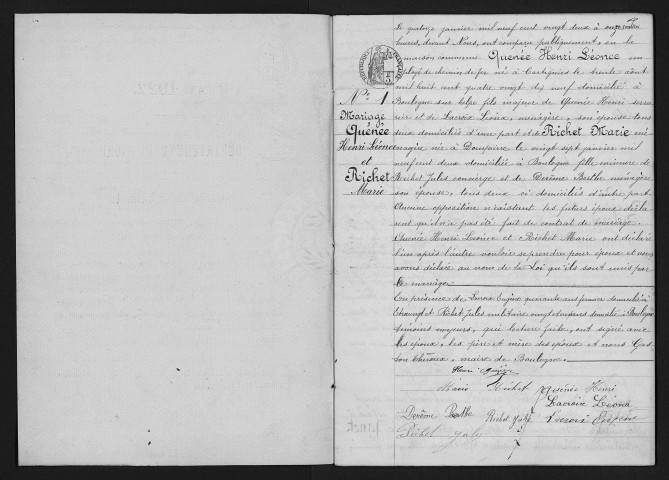 Nº 1
Mariage
Quénée
Henri Léonce
et
Richet
Marie
Le quatorze janvier mil neuf cent vingt deux à onze
heures, devant Nous, ont comparu publiquement, en la
maison commune Quenée Henri Léonce em
ployé de chemin de fer né à le trente août
mil huit cent quatre vingt dix neuf domicilié à
Boulogne sur helpe fils majeur de Quenée Henri
et de Lacroix Léona, ménagère, son épouse tous
deux domiciliés d'une part et de Richet Marie mé
nagère née à Dompierre le vingt sept janvier mil
neuf cent deux domiciliée à Boulogne fille mineure de
Richet Jules concierge et de Derême Berthe ménagère
son épouse, tous deux ci domiciliés d'autre part
Aucune opposition n'existant les futurs époux décla
rent qu'il n'a pas été fait de contrat de mariage.
Quenée Henri Léonce et Richet Marie ont déclaré
l'un après l'autre vouloir se prendre pour époux et nous
avons déclaré au nom de la Loi qu'ils sont unis par
le mariage
En présence de Lacroix Eugène quarante ans domicilié à
et Richet Jules militaire vingt ans domicilié à Boulogne
témoins majeurs, qui lecture faite, ont signé avec
les époux, les père et mère des époux et nous Gas
ton, maire de Boulogne.
Henri Quénée
Marie Richet Quénée Henri
Lacroix Léona
Derême Berthe Richet Jules Lacroix Eugène
Richet Jules